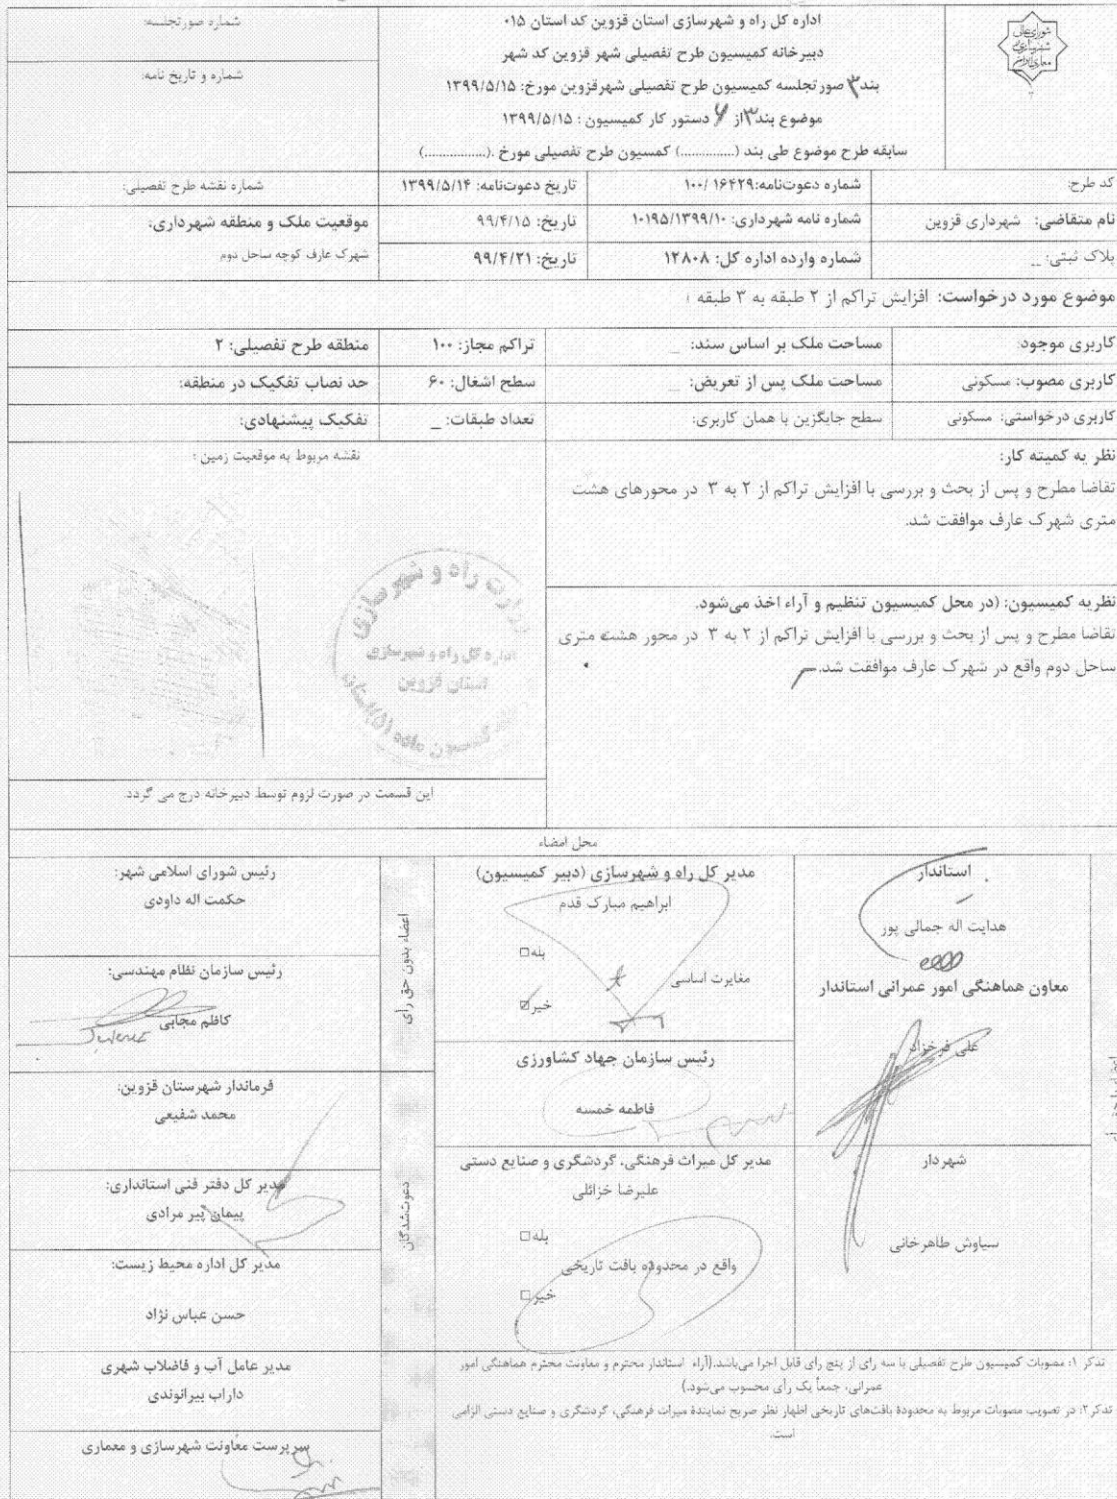 شورایعالی
شهرسازی و
معماری ایران
اداره کل راه و شهرسازی استان قزوین کد استان ۰۱۵
دبیرخانه کمیسیون طرح تفصیلی شهر قزوین کد شهر
بند ۳ صورتجلسه کمیسیون طرح تفصیلی شهرقزوین مورخ: ۱۳۹۹/۵/۱۵
موضوع بند ۳ از ۷ دستور کار کمیسیون : ۱۳۹۹/۵/۱۵
سابقه طرح موضوع طی بند (..............) کمسیون طرح تفصیلی مورخ .(................)
شماره صورتجلسه:
شماره و تاریخ نامه:
کد طرح: شماره دعوت‌نامه:۱۶۴۲۹ /۱۰۰ تاریخ دعوت‌نامه: ۱۳۹۹/۵/۱۴ شماره نقشه طرح تفصیلی:
نام متقاضی: شهرداری قزوین شماره نامه شهرداری: ۱۰۱۹۵/۱۳۹۹/۱۰ تاریخ: ۹۹/۴/۱۵ موقعیت ملک و منطقه شهرداری:
پلاک ثبتی: _ شماره وارده اداره کل: ۱۲۸۰۸ تاریخ: ۹۹/۴/۲۱ شهرک عارف کوچه ساحل دوم
موضوع مورد درخواست: افزایش تراکم از ۲ طبقه به ۳ طبقه
کاربری موجود: مساحت ملک بر اساس سند: _ تراکم مجاز: ۱۰۰ منطقه طرح تفصیلی: ۲
کاربری مصوب: مسکونی مساحت ملک پس از تعریض: _ سطح اشغال: ۶۰ حد نصاب تفکیک در منطقه:
کاربری درخواستی: مسکونی سطح جایگزین با همان کاربری: تعداد طبقات: _ تفکیک پیشنهادی:
نظر یه کمیته کار:
تقاضا مطرح و پس از بحث و بررسی با افزایش تراکم از ۲ به ۳ در محورهای هشت
متری شهرک عارف موافقت شد.
نظریه کمیسیون: (در محل کمیسیون تنظیم و آراء اخذ می‌شود.
تقاضا مطرح و پس از بحث و بررسی با افزایش تراکم از ۲ به ۳ در محور هشت متری
ساحل دوم واقع در شهرک عارف موافقت شد.
نقشه مربوط به موقعیت زمین :
وزارت راه و شهرسازی
اداره کل راه و شهرسازی
استان قزوین
کمیسیون ماده (۵) استان
این قسمت در صورت لزوم توسط دبیرخانه درج می گردد.
محل امضاء
استاندار
هدایت اله جمالی پور
معاون هماهنگی امور عمرانی استاندار
علی فرخزاد
شهردار
سیاوش طاهرخانی
مدیر کل راه و شهرسازی (دبیر کمیسیون)
ابراهیم مبارک قدم
بله □
مغایرت اساسی
خیر ☑
رئیس سازمان جهاد کشاورزی
فاطمه خمسه
مدیر کل میراث فرهنگی، گردشگری و صنایع دستی
علیرضا خزائلی
بله □
واقع در محدوده بافت تاریخی
خیر □
اعضاء بدون حق رأی
رئیس شورای اسلامی شهر:
حکمت اله داودی
رئیس سازمان نظام مهندسی:
کاظم مجابی
دعوت‌شدگان
فرماندار شهرستان قزوین:
محمد شفیعی
مدیر کل دفتر فنی استانداری:
پیمان پیر مرادی
مدیر کل اداره محیط زیست:
حسن عباس نژاد
مدیر عامل آب و فاضلاب شهری
داراب بیرانوندی
سرپرست معاونت شهرسازی و معماری
تذکر ۱: مصوبات کمیسیون طرح تفصیلی با سه رای از پنج رأی قابل اجرا می‌باشد.(آراء استاندار محترم و معاونت محترم هماهنگی امور
عمرانی، جمعاً یک رأی محسوب می‌شود.)
تذکر۲: در تصویب مصوبات مربوط به محدودة بافت‌های تاریخی اظهار نظر صریح نمایندة میراث فرهنگی، گردشگری و صنایع دستی الزامی
است.